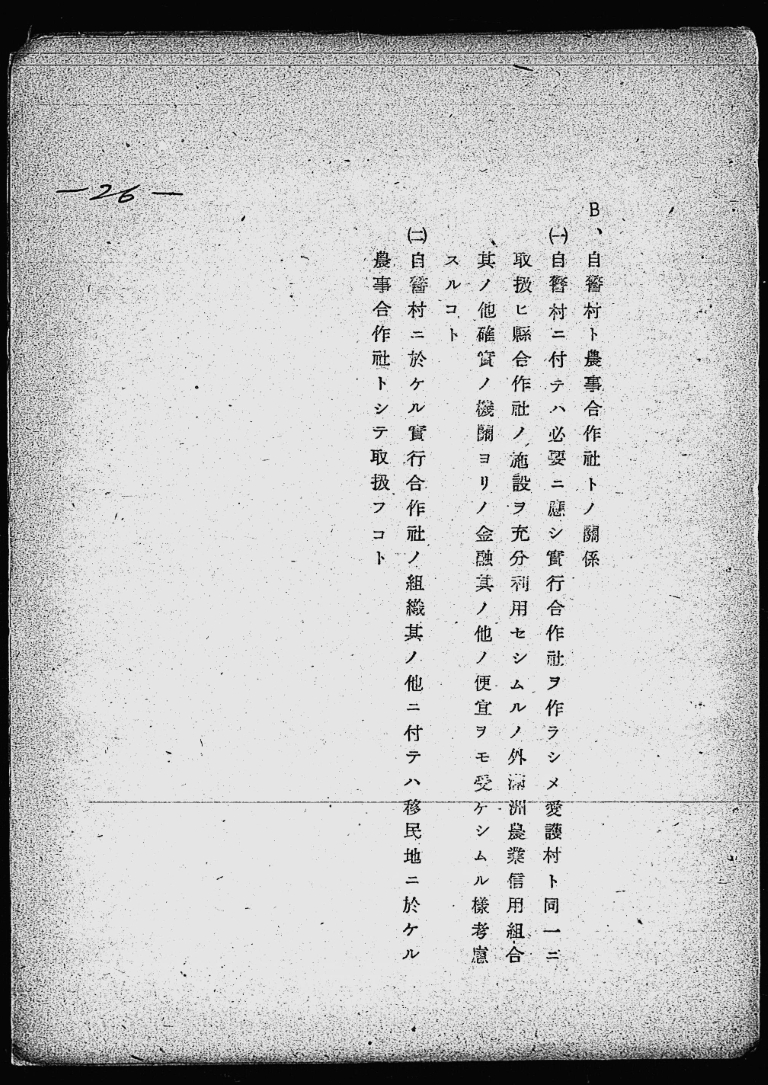 B、自警村ト農事合作社トノ關係
㈠自警村ニ付テハ必要ニ應シ實行合作社ヲ作ラシメ愛護村ト同一ニ
取扱ヒ縣合作社ノ施設ヲ充分利用セシムルノ外滿洲農業信用組合
其ノ他確實ノ機關ヨリノ金融其ノ他ノ便宜ヲモ受ケシムル樣考慮
スルコト
㈡自警村ニ於ケル實行合作社ノ組織其ノ他ニ付テハ移民地ニ於ケル
農事合作社トシテ取扱フコト
—26—